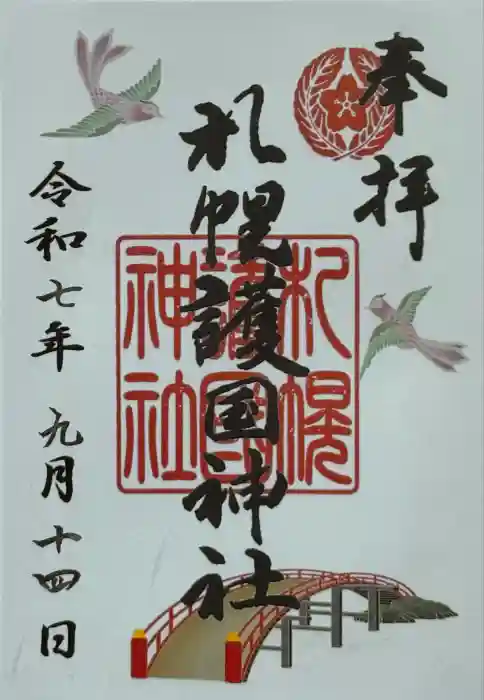 奉拝
札幌護国神社
札幌
護国
神社
令和七年 九月十四日